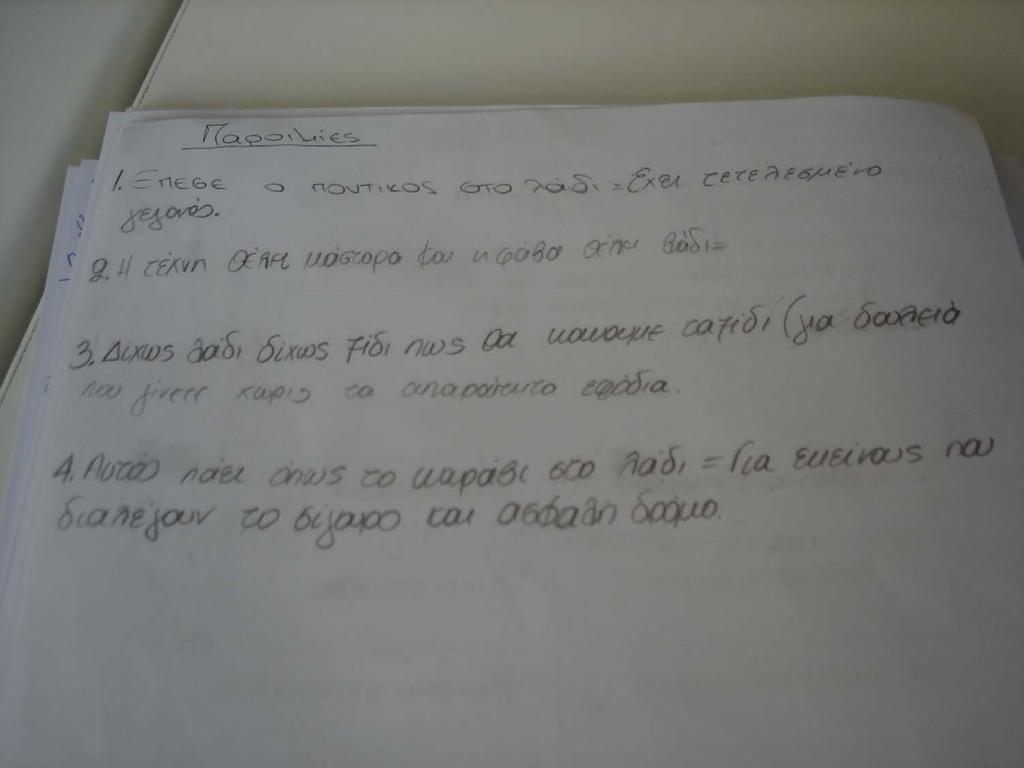 Παροιμίες
1. Επεσε ο ποντικος στο λάδι = Εχει τετελεσμένο
γεγονός.
2. Η τέχνη θέλει μάστορα και η φάβα θέλει λάδι =
3. Διχως λάδι διχως ξίδι πως θα κανουμε ταξιδι (για δουλειά
που γίνετε χωρίς τα απαραίτητα εφόδια.
4. Αυτός πάει όπως το καράβι στο λάδι = Για εκείνους που
διαλέγουν το σίγουρο και ασφαλη δρόμο.